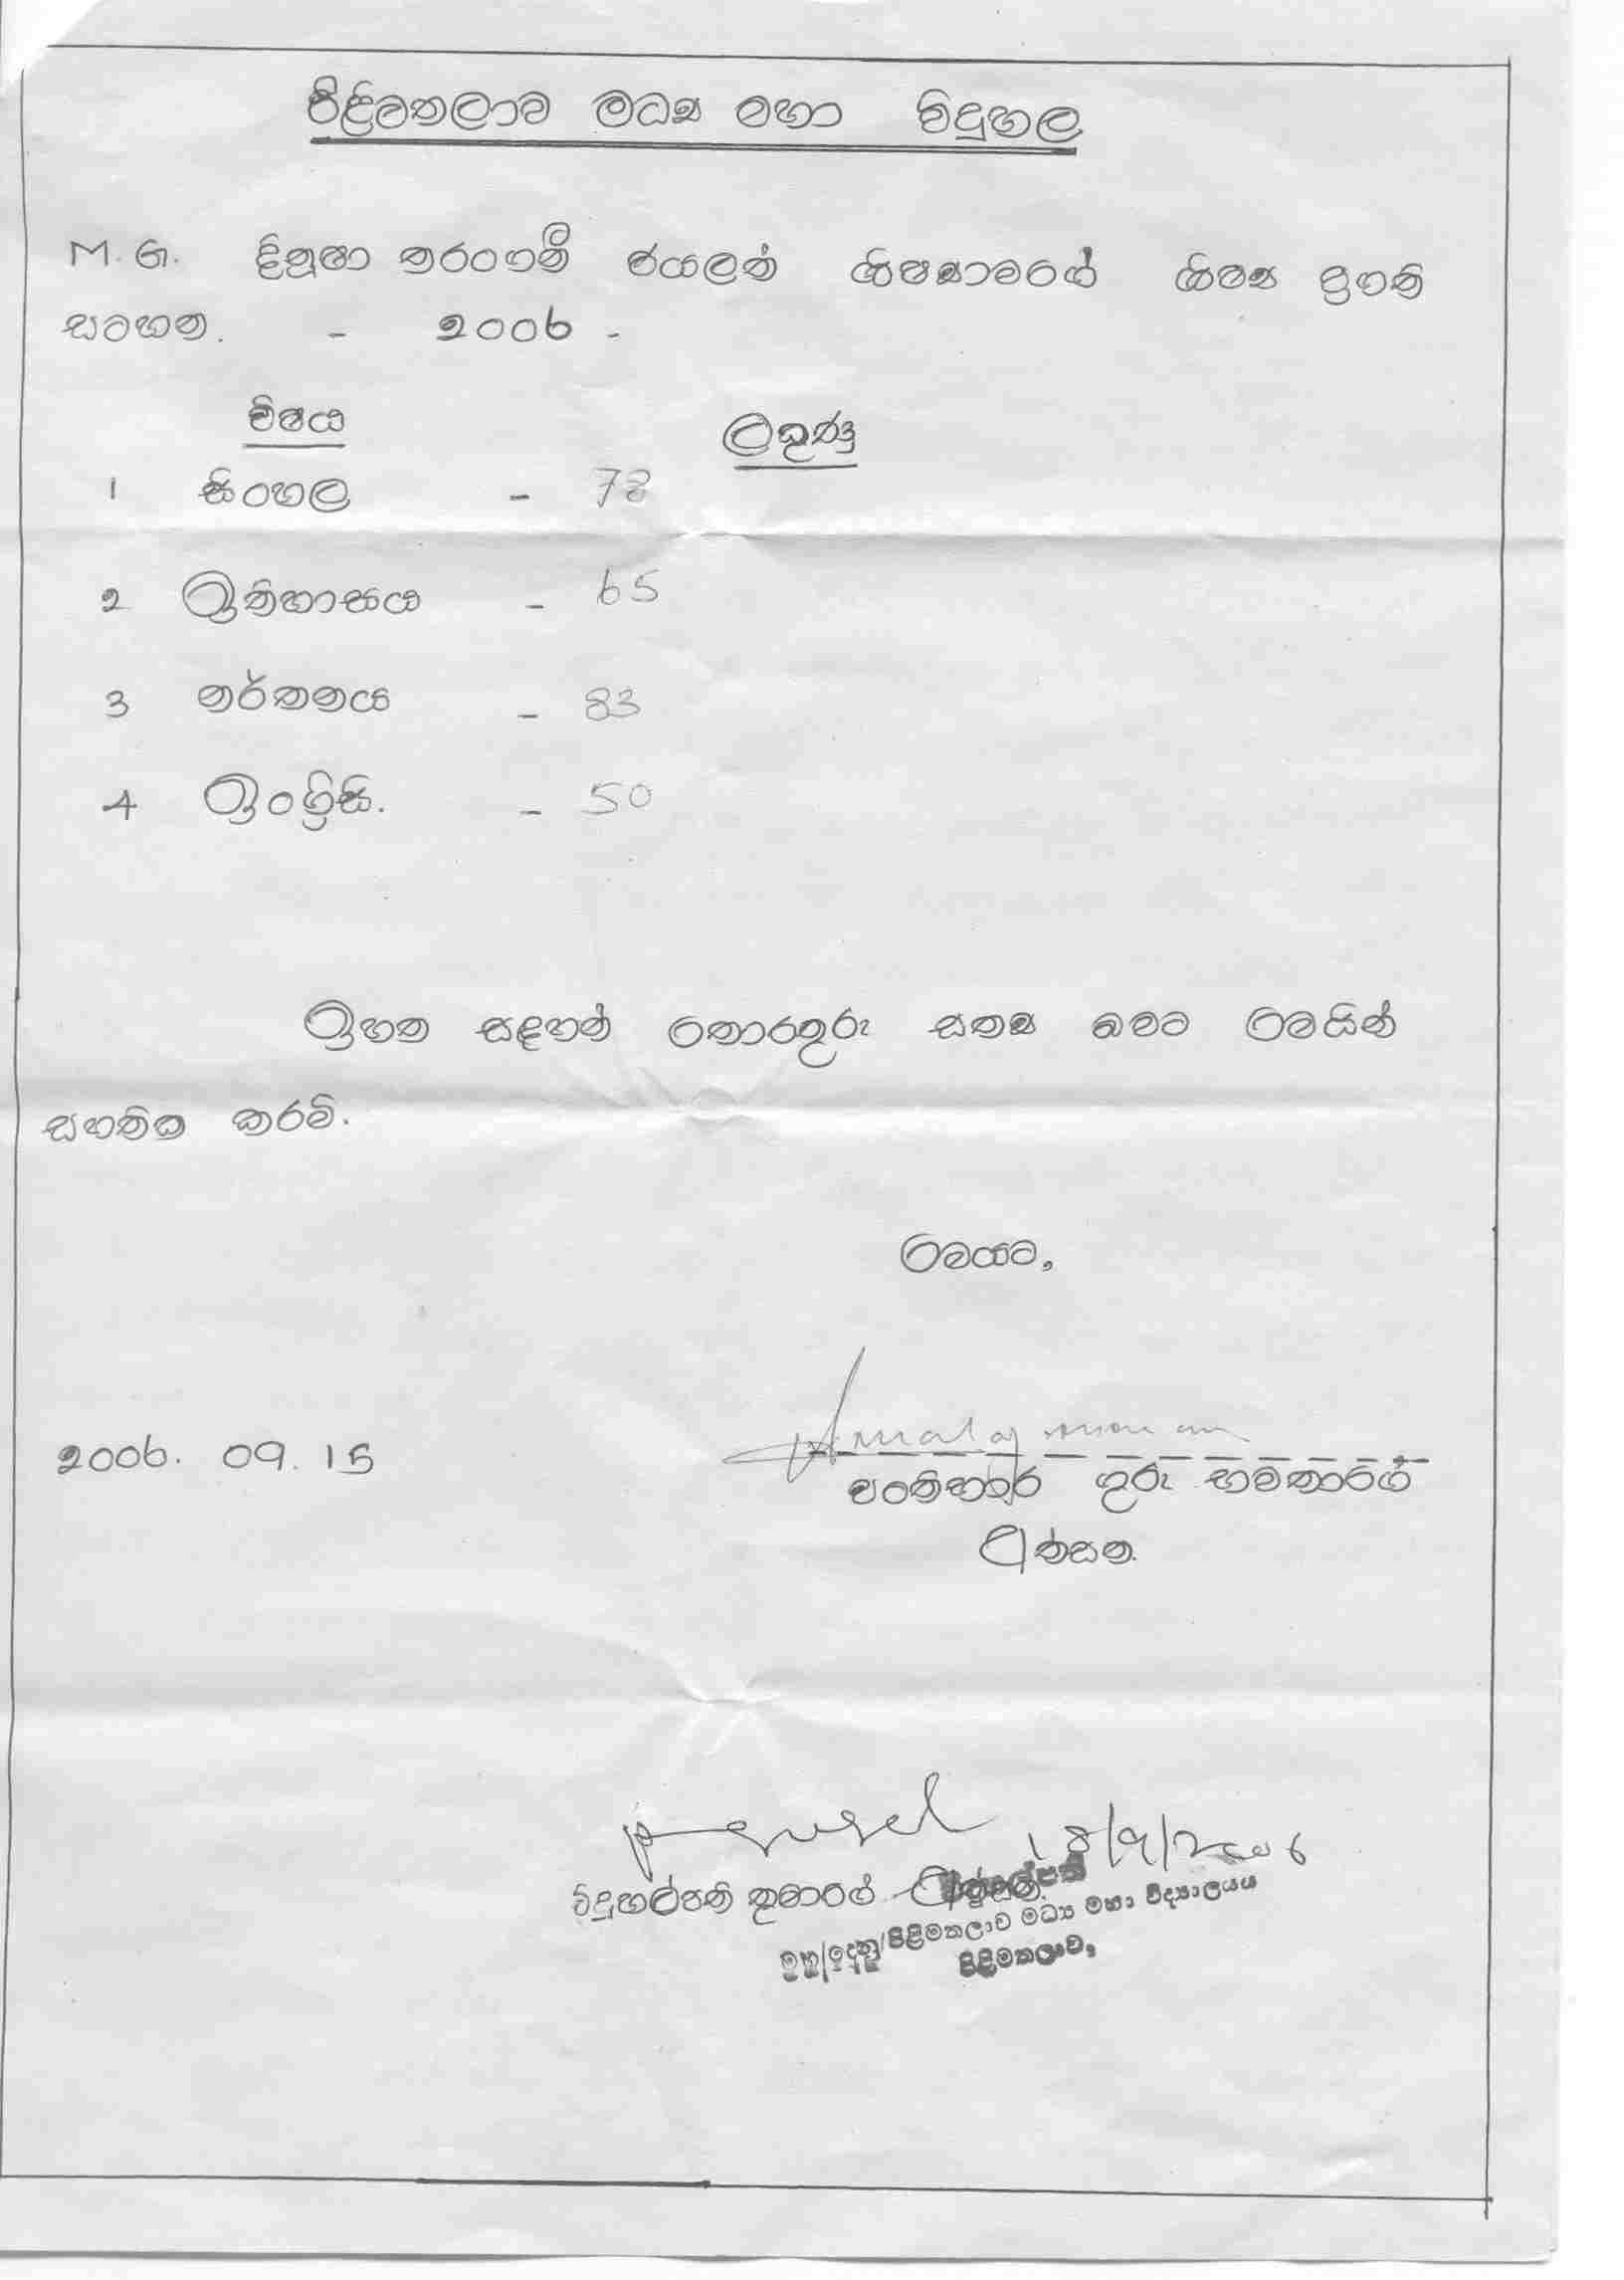 පිළිමතලාව මධ්‍ය මහා විදුහල
M. G. දිනූෂා තරංගනී ජයලත් ශිෂ්‍යාවගේ ශිෂ්‍ය ප්‍රගති
සටහන. - 2006 -
විෂය ලකුණු
1 සිංහල - 78
2 ඉතිහාසය - 65
3 නර්තනය - 83
4 ඉංග්‍රිසි. - 50
ඉහත සඳහන් තොරතුරු සත්‍ය බවට මෙයින්
සහතික කරමි.
මෙයට,
2006. 09. 15
පංතිභාර ගුරු භවතාගේ
අත්සන.
18/9/2006
විදුහල්පති තුමාගේ
මූහු/දෙනු/පිළිමතලාව මධ්‍ය මහා විද්‍යාලයය
පිළිමතලාව,